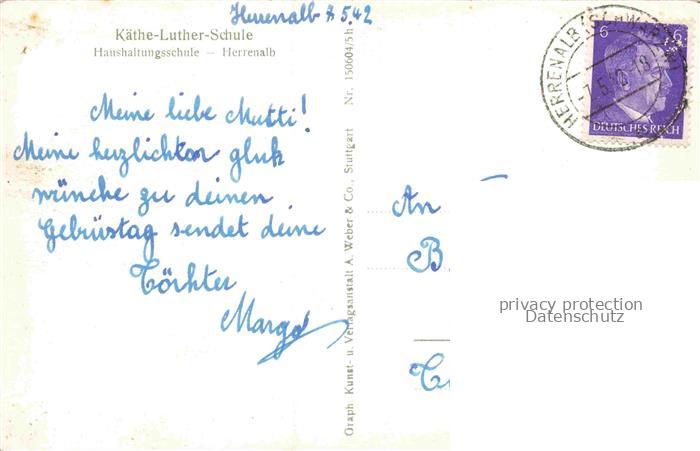 Herrenalb 7.5.42
Käthe-Luther-Schule
Haushaltungsschule — Herrenalb
Meine liebe Mutti!
Meine herzlichten gluk
wünche zu deinen
Gebrüstag sendet deine
Töchter
Margo
Graph. Kunst- u. Verlagsanstalt A. Weber & Co., Stuttgart Nr. 150604/5h
HERRENALB (SCHWARZW)
6 6
DEUTSCHES REICH
An
B
privacy protection
Datenschutz